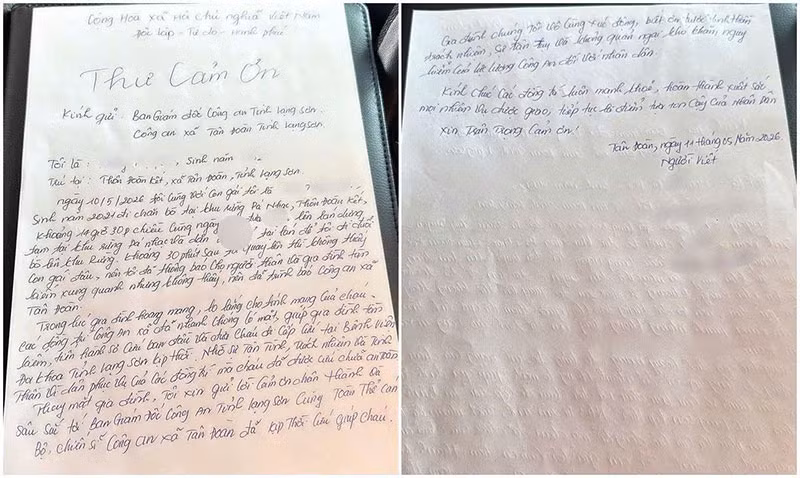 Cộng Hòa xã Hội chủ nghĩa Việt Nam
Độc lập - Tự do - Hạnh phúc
Thư Cảm Ơn
Kính gửi: Ban Giám đốc Công an Tỉnh Lạng Sơn.
Công an xã Tân Đoàn Tỉnh Lạng Sơn.
Tôi là: , Sinh năm
Trú tại: Thôn Đoàn Kết, xã Tân Đoàn, Tỉnh Lạng Sơn.
ngày 10/5/2026 tôi cùng với con gái tôi là
Sinh năm 2021 đi chăn bò tại khu rừng Pá Nhạc, Thôn Đoàn Kết,
khoảng 14 giờ 30p chiều cùng ngày lên lán dựng
tạm tại khu rừng Pá nhạc và dặn tại lán để tôi đi đuổi
bò lên khu rừng. Khoảng 30 phút sau quay lên thì không thấy
con gái đâu, nên tôi đã thông báo cho người thân và gia đình tìm
kiếm xung quanh nhưng không thấy, nên đã trình báo công an xã
Tân Đoàn.
Trong lúc gia đình hoang mang, lo lắng cho tính mạng của cháu.
các đồng chí công an xã đã nhanh chóng có mặt, giúp gia đình tìm
kiếm, tiến hành sơ cứu ban đầu và đưa cháu đi cấp cứu tại Bệnh viện
Đa khoa Tỉnh Lạng Sơn kịp thời. Nhờ sự tận tình, trách nhiệm và tinh
thần vì dân phục vụ của các đồng chí mà cháu đã được cứu chữa an toàn
Thay mặt gia đình, Tôi xin gửi lời cảm ơn chân thành và
sâu sắc tới Ban Giám Đốc Công An Tỉnh Lạng Sơn cùng Toàn Thể cán
Bộ, chiến sĩ công an xã Tân Đoàn đã kịp thời cứu giúp cháu.
Gia đình chúng tôi vô cùng xúc động, biết ơn trước tinh thần
trách nhiệm, sự tận tụy và không quản ngại khó khăn, nguy
hiểm của lực lượng Công an đối với nhân dân.
Kính chúc các đồng chí luôn mạnh khoẻ, hoàn thành xuất sắc
mọi nhiệm vụ được giao, tiếp tục là điểm tựa tin cậy của nhân dân
xin Trân Trọng cảm ơn!
Tân Đoàn, ngày 11 tháng 05 năm 2026
Người viết